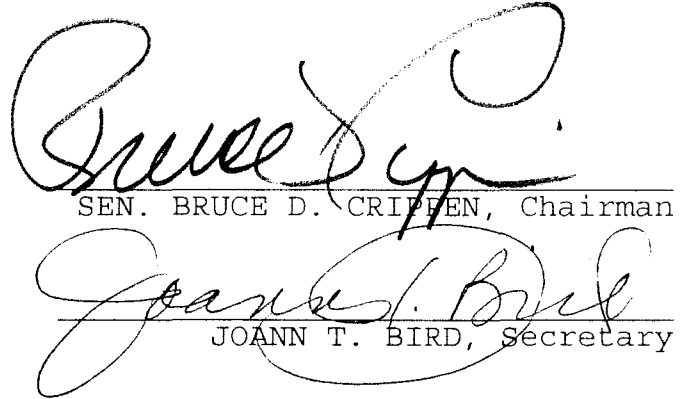 Bruce D. Crippen
SEN. BRUCE D. CRIPPEN, Chairman
Joann T. Bird
JOANN T. BIRD, Secretary